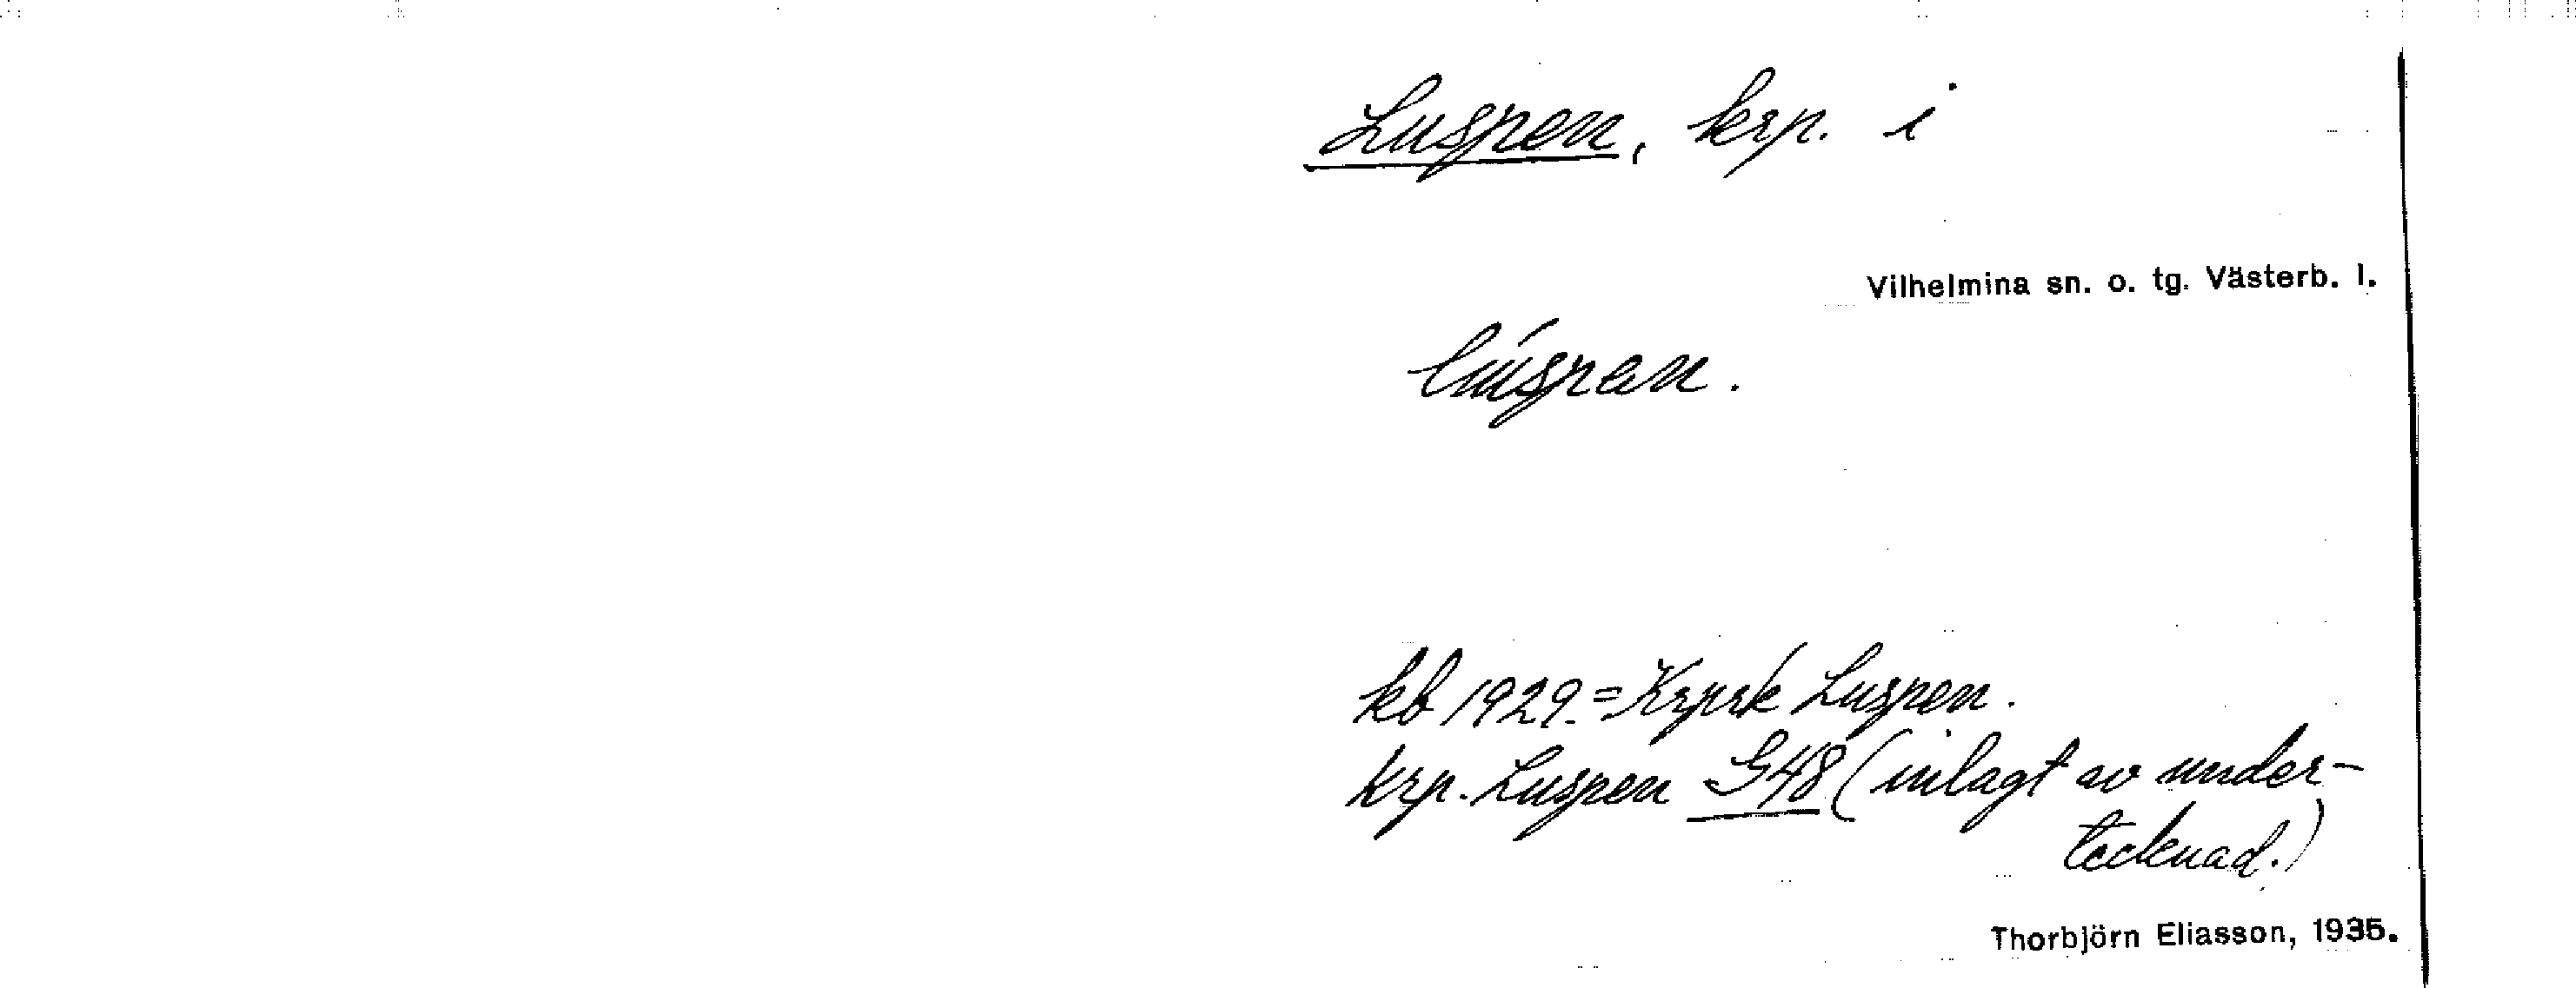 Luspen, krp. i
Vilhelmina sn. o. tg. Västerb. l.
lúspen.
kb 1929. = Krpsk Luspen.
krp. Luspen G48 (inlagt av under-
tecknad.)
Thorbjörn Eliasson, 1935.